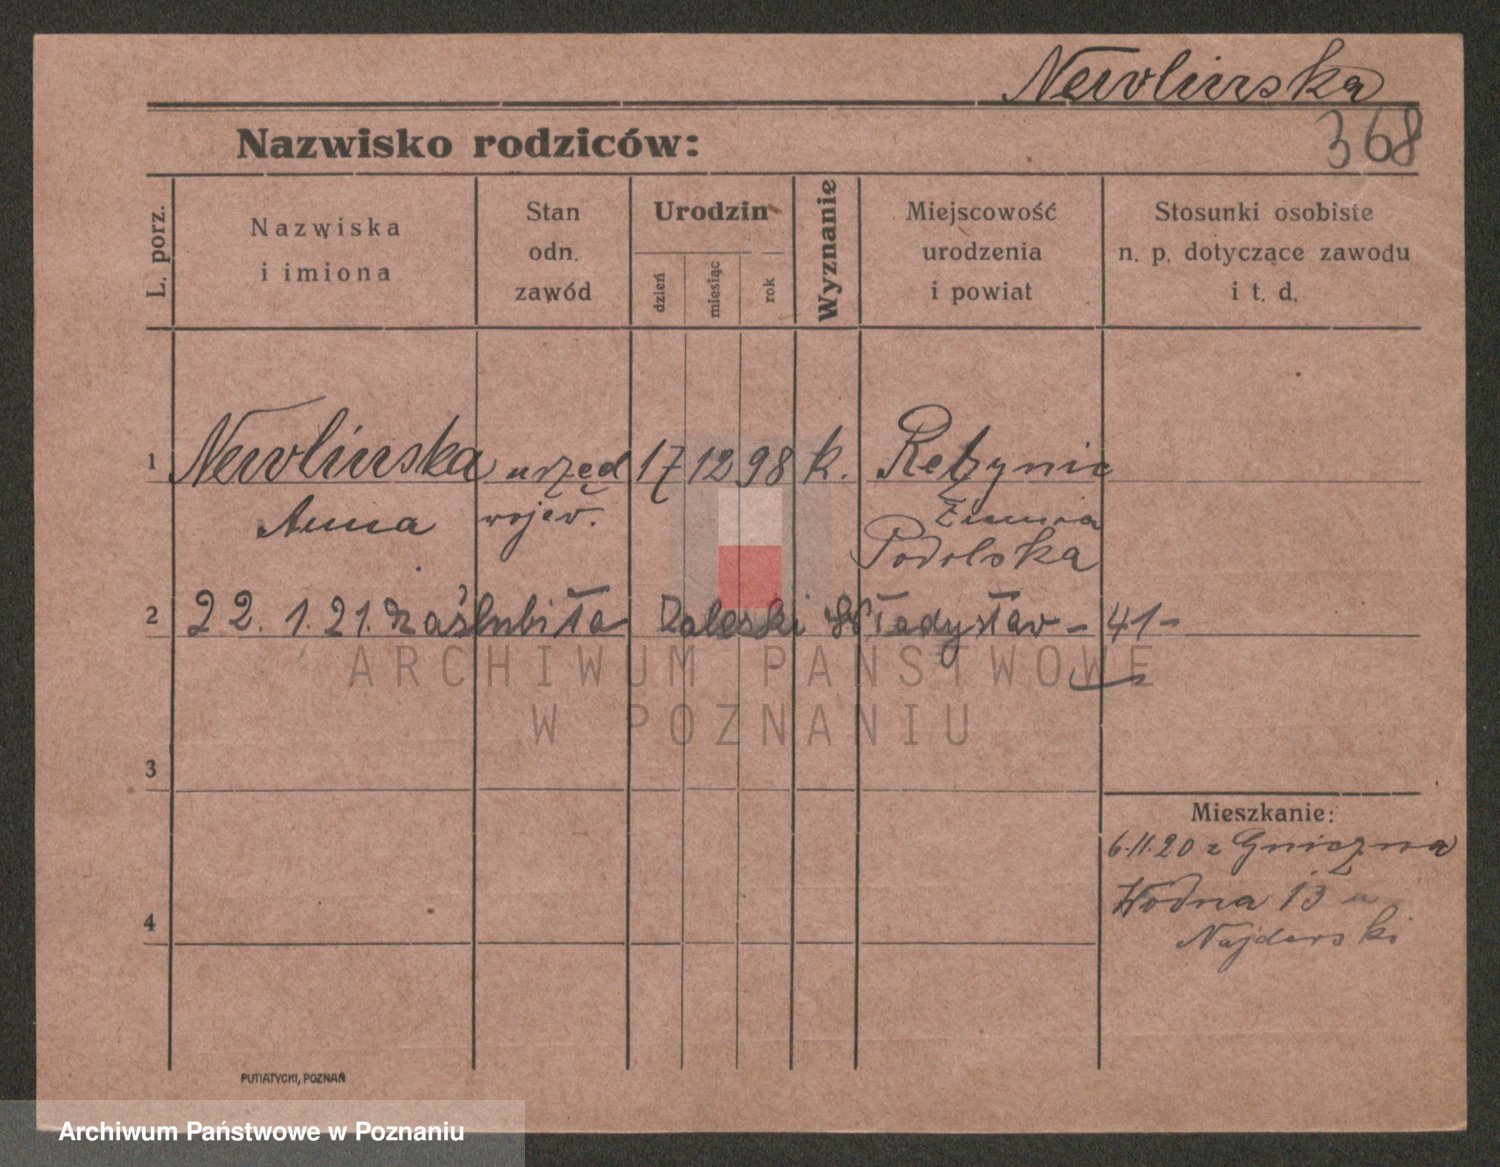 Newlinska
368
Nazwisko rodziców:
L. porz.
Nazwiska
i imiona
Stan
odn.
zawód
Urodzin
dzień
miesiąc
rok
Wyznanie
Miejscowość
urodzenia
i powiat
Stosunki osobiste
n. p. dotyczące zawodu
i t. d.
1 Newlinska urzęd 17 12 98 k.
Anna wojew. Ziemia
Podolska
2 22. 1. 21. zaślubiła Zaleski Władysław - 41-
ARCHIWUM PAŃSTWOWE
W POZNANIU
3
Mieszkanie:
6.11.20 z Gniezna
Wodna 13 u
4
PUTIATYCKI, POZNAŃ
Archiwum Państwowe w Poznaniu